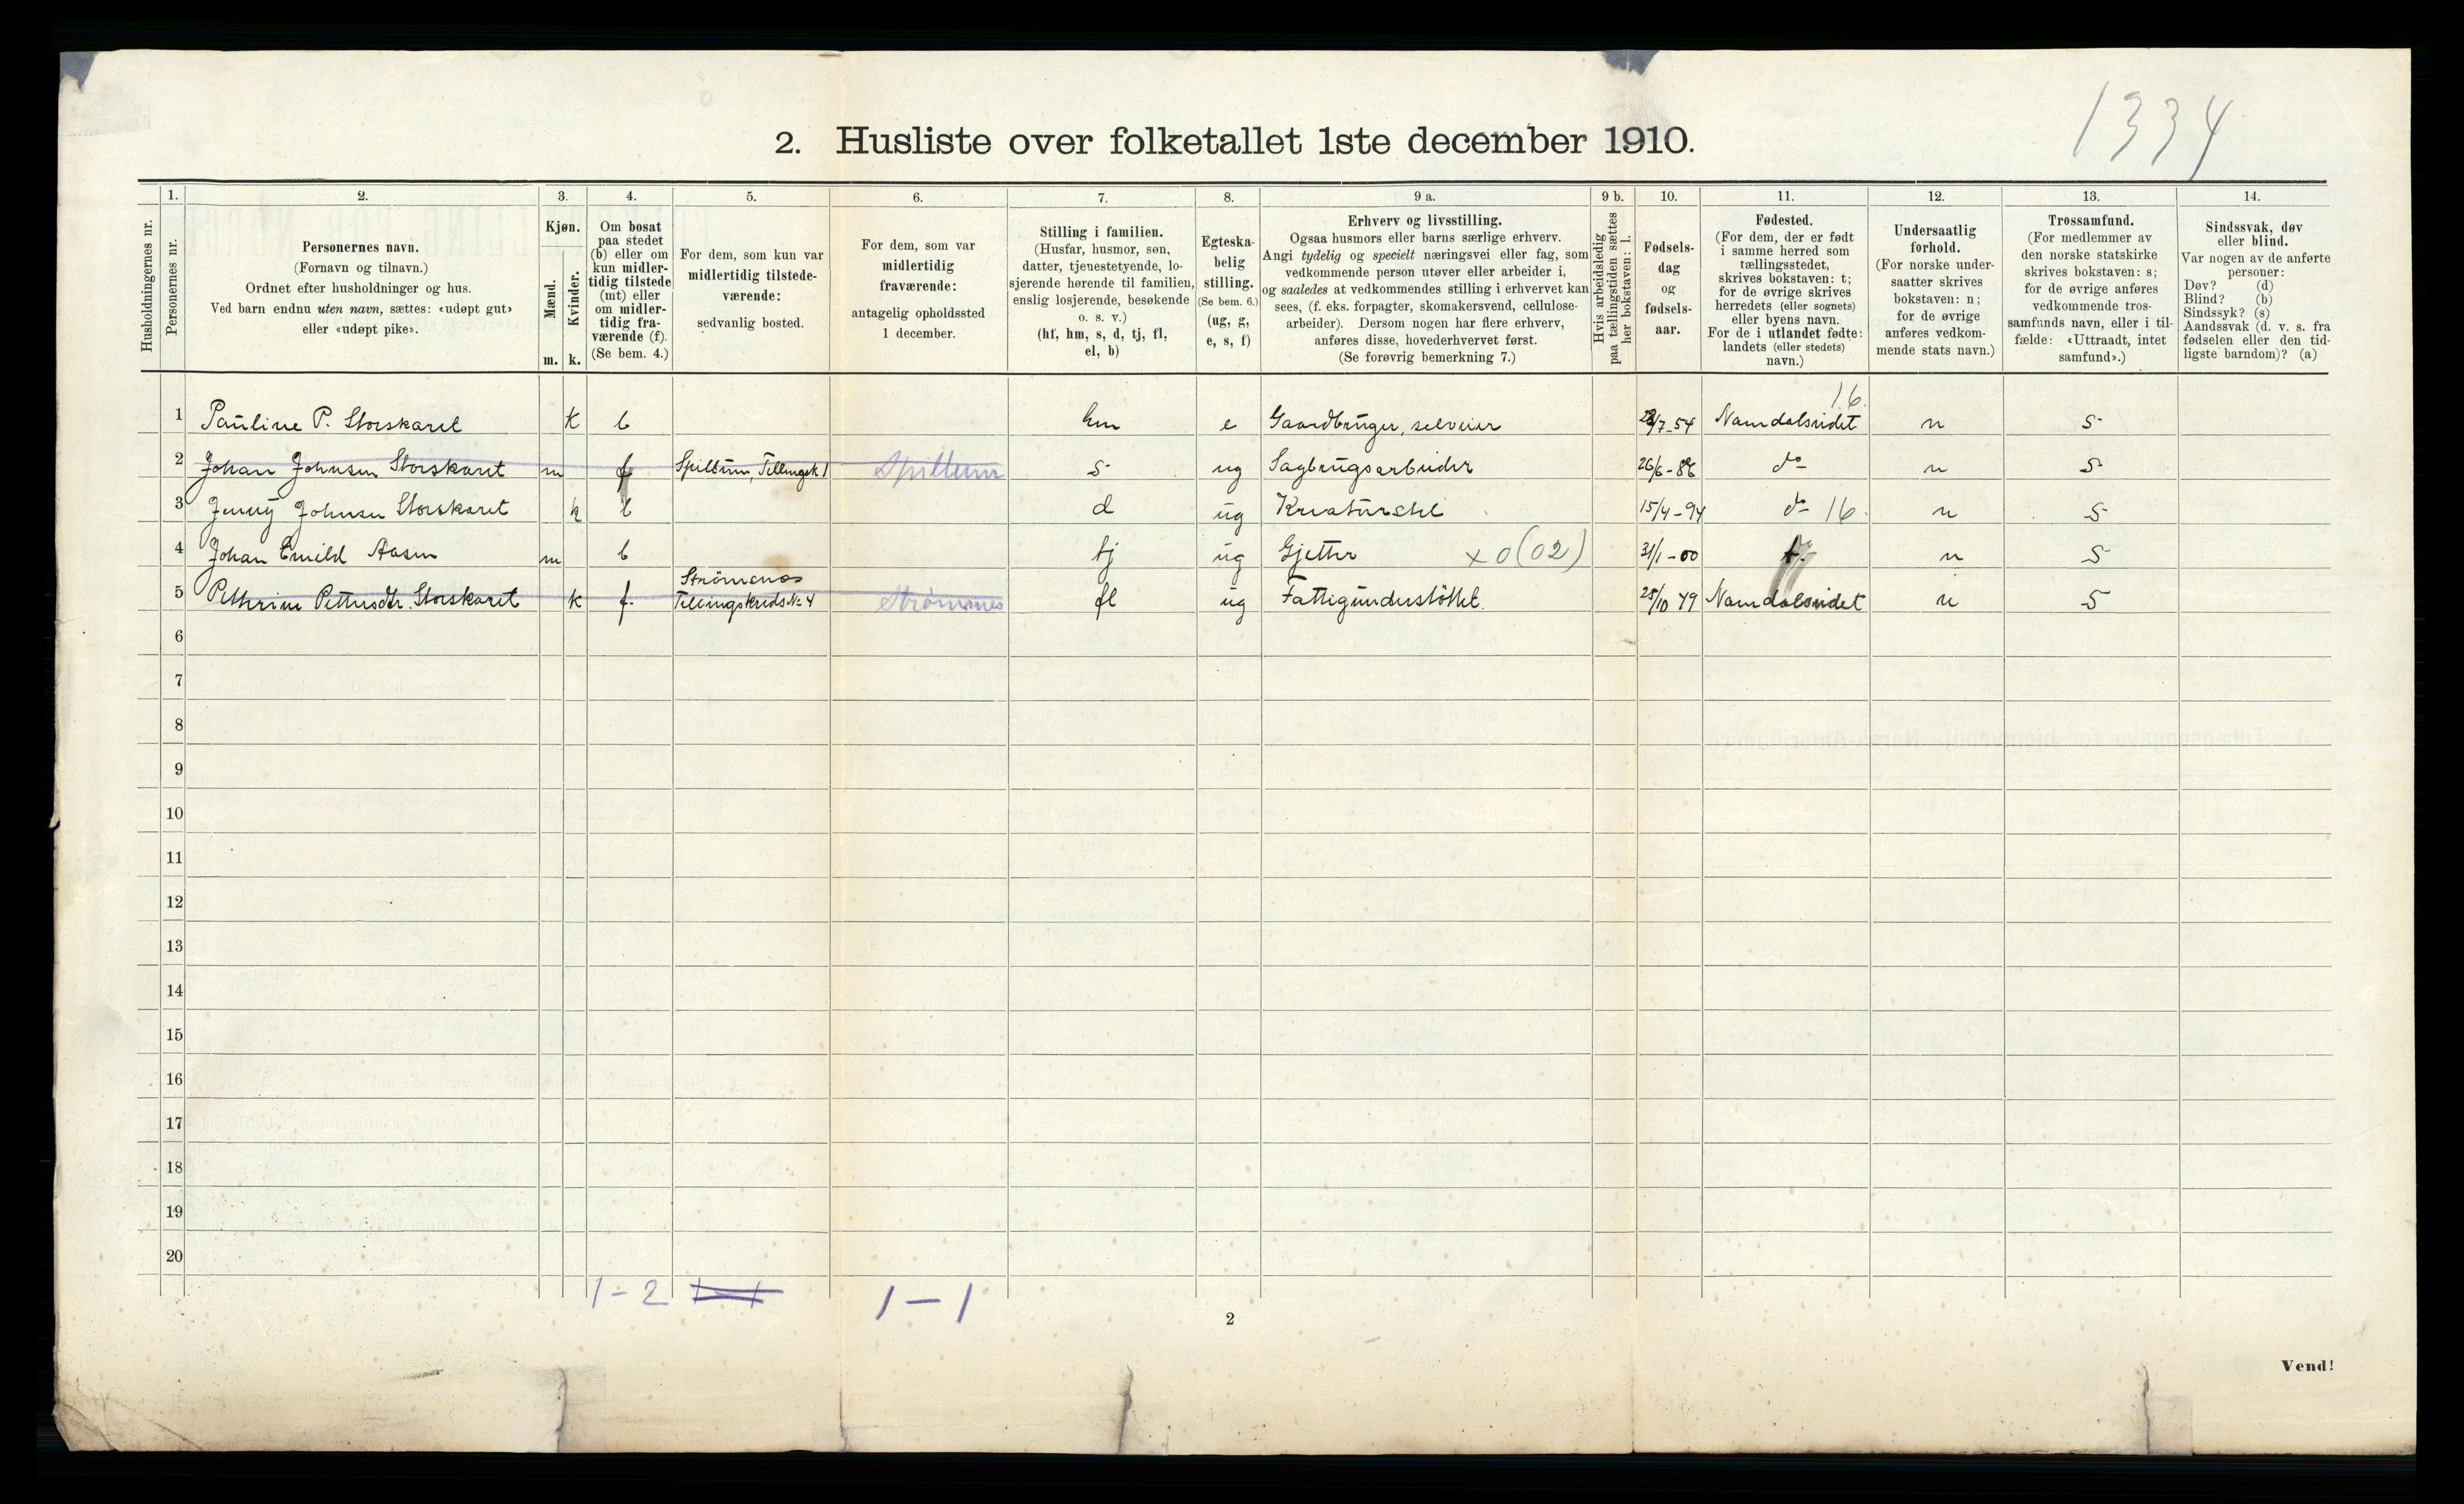 1334
2. Husliste over folketallet 1ste december 1910.
Husholdningernes nr.
1.
Personernes nr.
2.
Personernes navn.
(Fornavn og tilnavn.)
Ordnet efter husholdninger og hus.
Ved barn endnu uten navn, sættes: «udøpt gut»
eller «udøpt pike».
3.
Kjøn.
Mænd.
Kvinder.
m. k.
4.
Om bosat
paa stedet
(b) eller om
kun midler-
tidig tilstede
(mt) eller
om midler-
tidig fra-
værende (f).
(Se bem. 4.)
5.
For dem, som kun var
midlertidig tilstede-
værende:
sedvanlig bosted.
6.
For dem, som var
midlertidig
fraværende:
antagelig opholdssted
1 december.
7.
Stilling i familien.
(Husfar, husmor, søn,
datter, tjenestetyende, lo-
sjerende hørende til familien,
enslig losjerende, besøkende
o. s. v.)
(hf, hm, s, d, tj, fl,
el, b)
8.
Egteska-
belig
stilling.
(Se bem. 6.)
(ug, g,
e, s, f)
9 a.
Erhverv og livsstilling.
Ogsaa husmors eller barns særlige erhverv.
Angi tydelig og specielt næringsvei eller fag, som
vedkommende person utøver eller arbeider i,
og saaledes at vedkommendes stilling i erhvervet kan
sees, (f. eks. forpagter, skomakersvend, cellulose-
arbeider). Dersom nogen har flere erhverv,
anføres disse, hovederhvervet først.
(Se forøvrig bemerkning 7.)
9 b.
Hvis arbeidsledig
paa tællingstiden sættes
her bokstaven: l.
10.
Fødsels-
dag
og
fødsels-
aar.
11.
Fødested.
(For dem, der er født
i samme herred som
tællingsstedet,
skrives bokstaven: t;
for de øvrige skrives
herredets (eller sognets)
eller byens navn.
For de i utlandet fødte:
landets (eller stedets)
navn.)
12.
Undersaatlig
forhold.
(For norske under-
saatter skrives
bokstaven: n;
for de øvrige
anføres vedkom-
mende stats navn.)
13.
Trossamfund.
(For medlemmer av
den norske statskirke
skrives bokstaven: s;
for de øvrige anføres
vedkommende tros-
samfunds navn, eller i til-
fælde: «Uttraadt, intet
samfund».)
14.
Sindssvak, døv
eller blind.
Var nogen av de anførte
personer:
Døv? (d)
Blind? (b)
Sindssyk? (s)
Aandssvak (d. v. s. fra
fødselen eller den tid-
ligste barndom)? (a)
16.
1 Pauline P. Storskaret k b hm e Gaardbruger, selveier 7-54 Namdalseidet n s
2 Johan Johnsen Storskaret m f Spillum, Tellingsk 1 Spillum s ug Sagbrugsarbeider 26/6-86 do n s
3 Jenny Johnsen Storskaret k b d ug Kreaturstel 15/4-94 do 16. n s
4 Johan Emild Aasen m b tj ug Gjetter x0(02) 31/1-00 t. n s
Strömsnes
5 Pethrine Pettersdtr. Storskaret k f. Tellingskreds No 4 Strömsnes fl ug Fattigunderstöttet. 25/10 49 Namdalseidet n s
6
7
8
9
10
11
12
13
14
15
16
17
18
19
20
1-2 1-1
2
Vend!